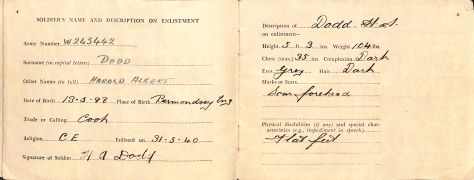 4
SOLDIER'S NAME AND DESCRIPTION ON ENLISTMENT
Army Number W243442
Surname (in capital letters) DODD
Other Names (in full) HAROLD ALBERT
Date of Birth 13-3-98 Place of Birth Bermondsey Eng
Trade or Calling Cook
Religion C.E Enlisted on 31-5-40
Signature of Soldier H A Dodd
Description of Dodd. H. A.
on enlistment—
Height 5 ft. 3 ins Weight 104 lbs
Chest (max.) 35 ins. Complexion Dark
Eyes Grey Hair Dark
Marks or Scars
Scar forehead
Physical disabilities (if any) and special charac-
teristics (e.g., impediment in speech).
Flat feet